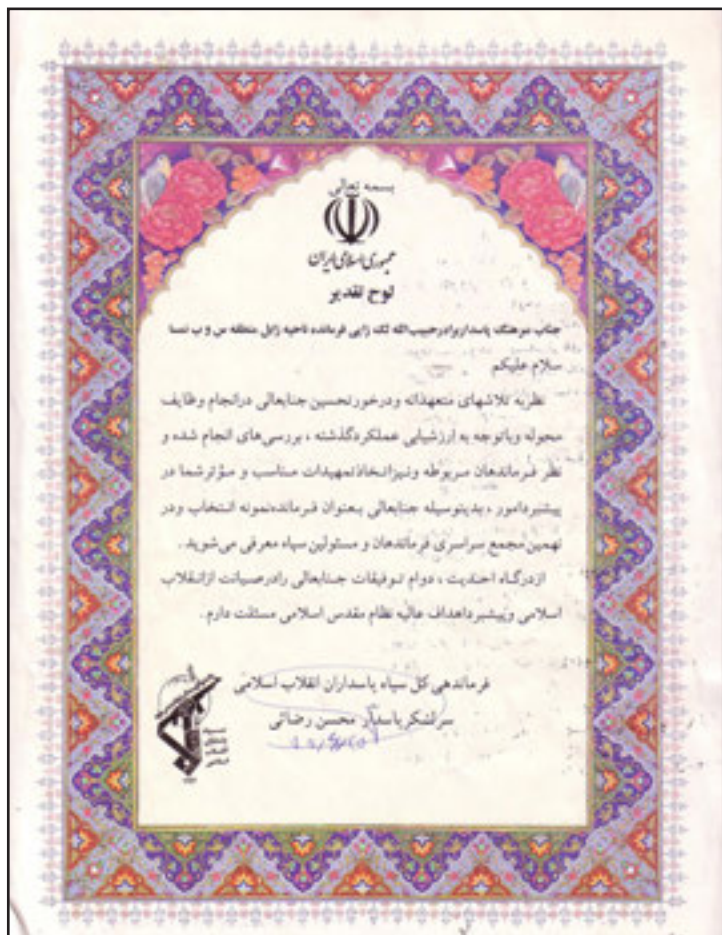 بسمه تعالی
جمهوری اسلامی ایران
لوح تقدیر
جناب سرهنگ پاسدار برادر حبیب‌الله لک زایی فرمانده ناحیه زابل منطقه س و ب نسا
سلام علیکم
نظر به تلاشهای متعهدانه و درخور تحسین جنابعالی در انجام وظایف
محوله و باتوجه به ارزشیابی عملکرد گذشته ، بررسی‌های انجام شده و
نظر فرماندهان مربوطه و نیز اتخاذ تمهیدات مناسب و مؤثر شما در
پیشبرد امور ، بدینوسیله جنابعالی بعنوان فرمانده نمونه انتخاب و در
نهمین مجمع سراسری فرماندهان و مسئولین سپاه معرفی می‌شوید .
از درگاه احدیت ، دوام توفیقات جنابعالی را در صیانت از انقلاب
اسلامی و پیشبرد اهداف عالیه نظام مقدس اسلامی مسئلت دارم .
فرماندهی کل سپاه پاسداران انقلاب اسلامی
سرلشکر پاسدار محسن رضائی